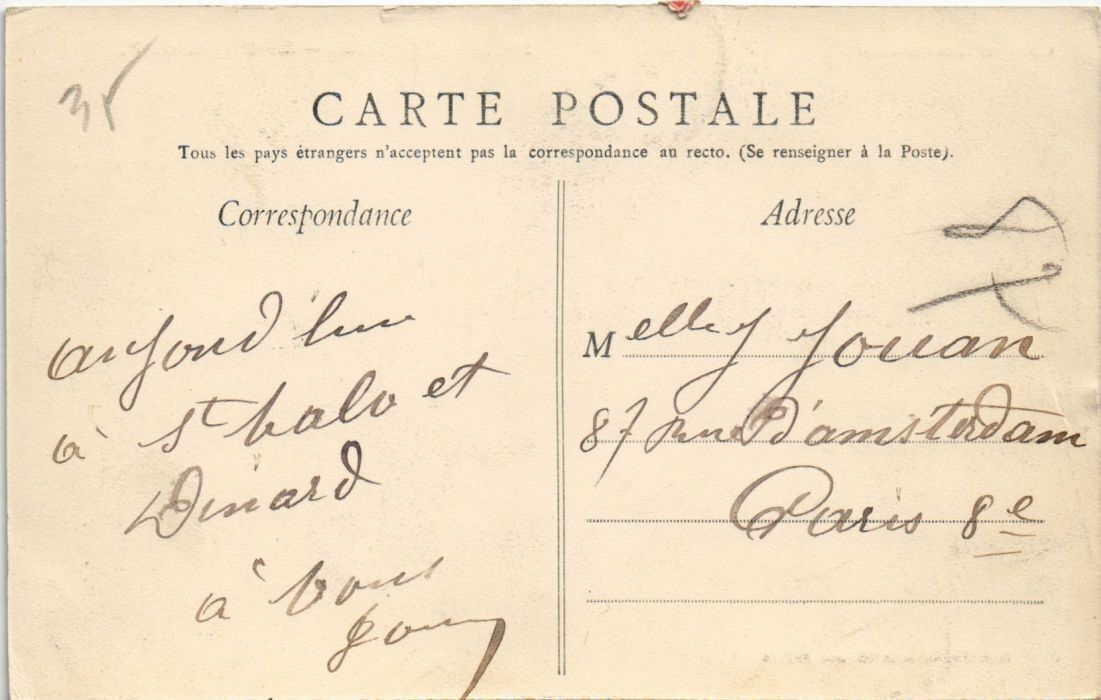 35
CARTE POSTALE
Tous les pays étrangers n'acceptent pas la correspondance au recto. (Se renseigner à la Poste).
Correspondance
aujourd'hui
à St Malo et
Dinard
à vous
Adresse
Melle J Jouan
87 rue D'amsterdam
Paris 8e